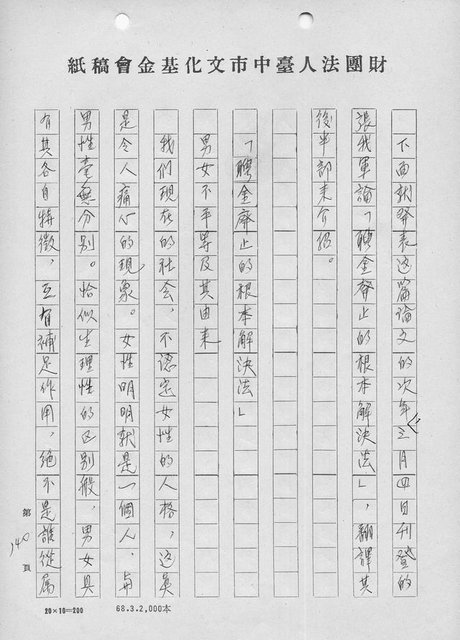 財團法人臺中市文化基金會稿紙
下面就發表這篇論文的次年三月四日刊登的
張我軍論「聘金廢止的根本解決法」，翻譯其
後半部來介紹。
「聘金廢止的根本解決法」
男女不平等及其由來
我們現在的社会，不認定女性的人格，这眞
是令人痛心的現象。女性明明就是一個人，与
男性毫無分別。恰似生理性的区别般，男女具
有其各自特徵，互有補足作用，絕不是誰從屬
第140頁
20×10=200
68.3.2,000本